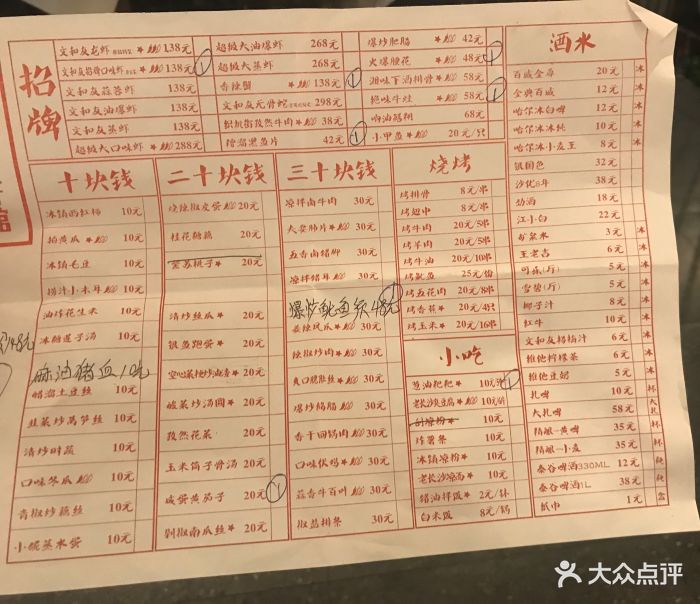 招牌
文和友龙虾 138元
文和友招牌口味虾 138元
文和友蒜蓉虾 138元
文和友油爆虾 138元
文和友蒸虾 138元
超级大口味虾 288元
超级大油爆虾 268元
超级大蒸虾 268元
香辣蟹 138元
文和友元骨蛇 298元
孜然牛肉 38元
42元
爆炒肥肠 42元
火爆腰花 48元
湘味下酒排骨 58元
绝味牛灶 58元
68元
小甲鱼 20元/只
酒水
百威金尊 20元 冰
金典百威 12元 冰
哈尔冰白啤 12元 冰
哈尔冰冰纯 10元 冰
哈尔冰小麦王 8元 冰
钒国色 32元
沙化8年 38元
劲酒 18元
江小白 22元
矿泉水 3元 冰
王老吉 6元 冰
可乐(斤) 5元 冰
雪碧(斤) 5元 冰
椰子汁 8元 冰
红牛 10元 冰
文和友杨梅汁 6元 冰
维他柠檬茶 6元 冰
维他豆奶 5元 冰
扎啤 10元 杯
大扎啤 58元 大扎
精酿-黄啤 35元 杯
精酿-小麦 35元 杯
泰谷啤酒330ML 12元
泰谷啤酒1L 38元
纸巾 1元 盒
十块钱
冰镇西红柿 10元
拍黄瓜 10元
冰镇毛豆 10元
捞汁小木耳 10元
油炸花生米 10元
冰糖莲子汤 10元
麻油猪血10元
醋溜土豆丝 10元
韭菜炒莴笋丝 10元
清炒时蔬 10元
口味冬瓜 10元
青椒炒藕丝 10元
小妮蒸水蛋 10元
二十块钱
烧辣椒皮蛋 20元
桂花糖藕 20元
紫苏桃子 20元
清炒丝瓜 20元
钒鱼跑蛋 20元
空心菜梗炒油渣 20元
酸菜炒汤圆 20元
孜然花菜 20元
玉米筒子骨汤 20元
咸蛋黄茄子 20元
剁椒南瓜丝 20元
三十块钱
凉拌卤牛肉 30元
夫妻肺片 30元
五香卤猪脚 30元
凉拌猪耳 30元
爆炒鱿鱼须48元
姜辣凤爪 30元
辣椒炒肉 30元
爽口脆肚丝 30元
爆炒鸡肠 30元
香干回锅肉 30元
口味伏鸡 30元
蒜香牛百叶 30元
椒盐排条 30元
烧烤
烤排骨 8元/串
烤翅中 8元/串
烤牛肉 20元/5串
烤羊肉 20元/5串
烤牛油 20元/10串
烤鱿鱼 25元/份
烤五花肉 20元/8串
烤香菇 20元/4只
烤玉米 20元/16串
小吃
葱油粑粑 10元
老长沙臭豆腐 10元
刮凉粉
炸薯条 10元
冰镇凉粉 10元
老长沙凉面 10元
猪油拌饭 2元/钵
白米饭 8元/锅
大众点评